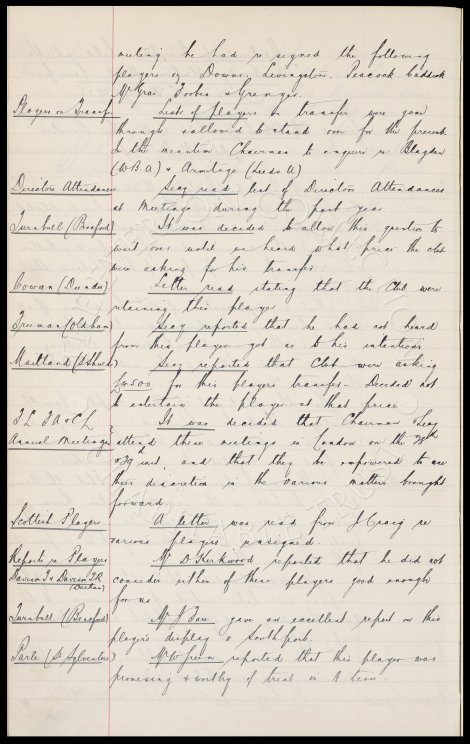 meeting, he had re-signed the following
players eg Downs, Livingstone, Peacock, Caddick
McGrae, Forbes & Grenyer.
Players on Transfer List of players on transfer were gone
through & allowed to stand over for the present.
In the meantime Chairman to enquire re Blagden
(W.B.A) & Armitage (Leeds A)
Directors Attendances Secy read list of Directors Attendances
at Meetings during the past year
Turnbull (Bradford) It was decided to allow this question to
wait over until we heard what price the club
were asking for his transfer.
Cowan (Dundee) Letter read stating that the Club were
retaining this player
Freeman (Oldham) Secy reported that he had not heard
from this player yet as to his intentions
Maitland (S Shields) Secy reported that Club were asking
£4500 for this players transfer - Decided not
to entertain the player at that price.
F.L. F.A. & C.L. It was decided that Chairman & Secy
Annual Meetings attend these meetings in London on the 28th
& 29th inst. and that they be empowered to use
their discretion in the various matters brought
forward.
Scottish Players A letter was read from J Craig re
various players unsigned.
Reports re Players Mr D Kirkwood reported that he did not
Davison J & Davison T.R. consider either of these players good enough
(Durham) for us
Turnbull (Bradford) Mr J gave an excellent report on this
players display @ Southport.
Parle (St Sylvesters) Mr W Green reported that this player was
promising & worthy of trial in A team.